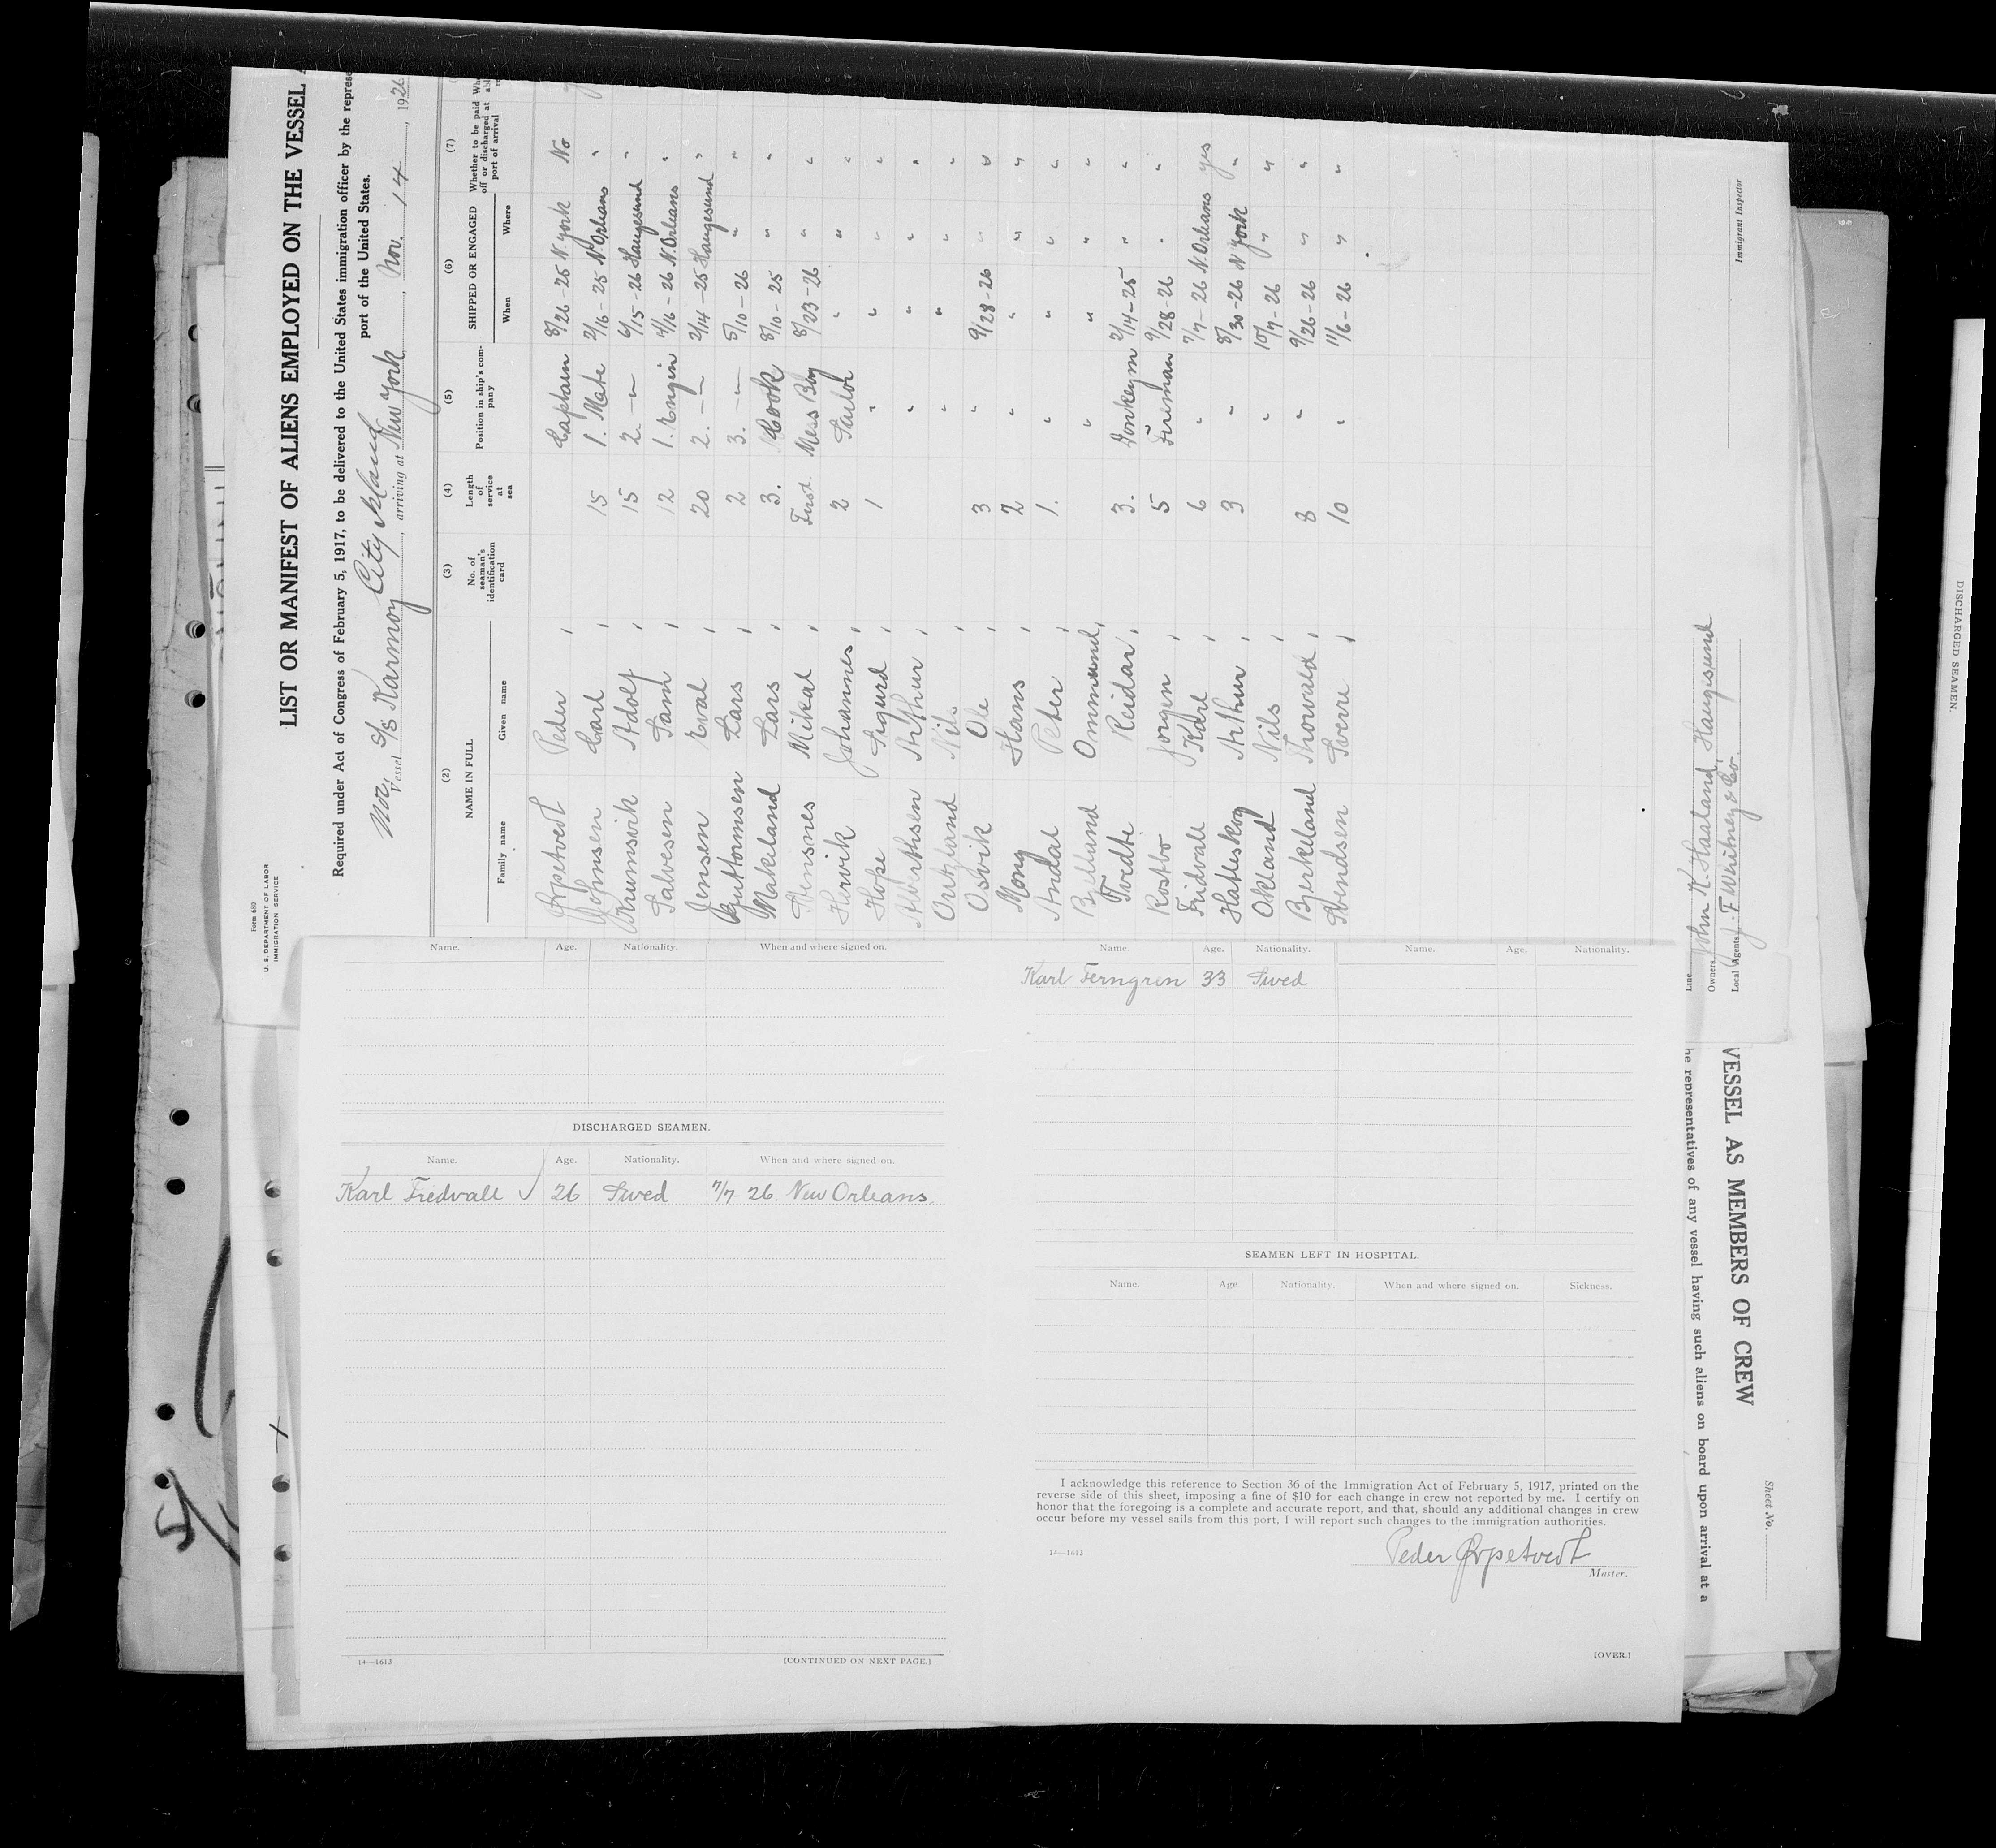 Form 680
U. S. DEPARTMENT OF LABOR
IMMIGRATION SERVICE
LIST OR MANIFEST OF ALIENS EMPLOYED ON THE VESSEL
Required under Act of Congress of February 5, 1917, to be delivered to the United States immigration officer by the represe
port of the United States.
Nor. Vessel S/S Karmoy, arriving at New York City, Nov. 14, 1926
(2) (3) (4) (5) (6) (7)
NAME IN FULL No. of seaman's identification card Length of service at sea Position in ship's company SHIPPED OR ENGAGED Whether to be paid off or discharged at port of arrival
Family name Given name When Where
Ørpetvedt Peder Captain 8/26-25 N. York No
Johnsen Carl 15 1. Mate 2/16-25 N Orleans "
Adolf 15 2 - " - 6/15-26 Haugesund "
Salvesen 12 1. Engin 4/16-26 N. Orleans "
Jensen 20 2. - " - 2/14-25 Haugesund "
Guttormsen Lars 2 3. - " - 5/10-26 " "
Makeland Lars 3. Cook 8/10-25 " "
Mikal First. Mess Boy 8/23-26 " "
Hervik Johannes 2 Sailor " " "
Hope Sigurd 1 " " " "
Alberthsen Arthur " " " "
Nils " " " "
Osvik Ole 3 " 9/28-26 " "
Mong Hans 2 " " " "
Andal Peter 1. " " " "
Ommund " " " "
Tvedte Reidar 3. Donkeym 2/14-25 " "
Rostbø Jørgen 5 Fireman 9/28-26 " "
Fridvall Karl 6 " 7/7-26 N. Orleans yes
Hatleskog Arthur 3 " 8/30-26 N York "
Okland Nils " 10/7-26 " "
Bjerkeland Thorvald 8 " 9/26-26 " "
Svendsen Sverre 10 " 11/6-26 " "
Line
Owners John K. Haaland, Haugesund
Local Agents J. F Whitney & Co.
Immigrant Inspector
Name. Age. Nationality. When and where signed on.
DISCHARGED SEAMEN.
Name. Age. Nationality. When and where signed on.
Karl Fredvall 26 Swed 7/7-26. New Orleans.
14—1613 [CONTINUED ON NEXT PAGE.]
Name. Age. Nationality. Name. Age. Nationality.
Karl Ferngren 33 Swed
SEAMEN LEFT IN HOSPITAL.
Name. Age. Nationality. When and where signed on. Sickness.
I acknowledge this reference to Section 36 of the Immigration Act of February 5, 1917, printed on the
reverse side of this sheet, imposing a fine of $10 for each change in crew not reported by me. I certify on
honor that the foregoing is a complete and accurate report, and that, should any additional changes in crew
occur before my vessel sails from this port, I will report such changes to the immigration authorities.
14—1613
Peder Ørpetvedt
Master.
[OVER.]
VESSEL AS MEMBERS OF CREW
he representatives of any vessel having such aliens on board upon arrival at a
Sheet No.
DISCHARGED SEAMEN.